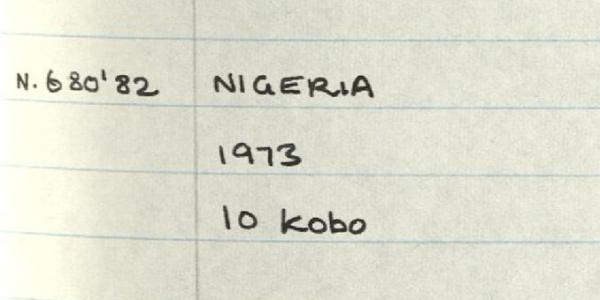 N. 680'82 NIGERIA
1973
10 kobo